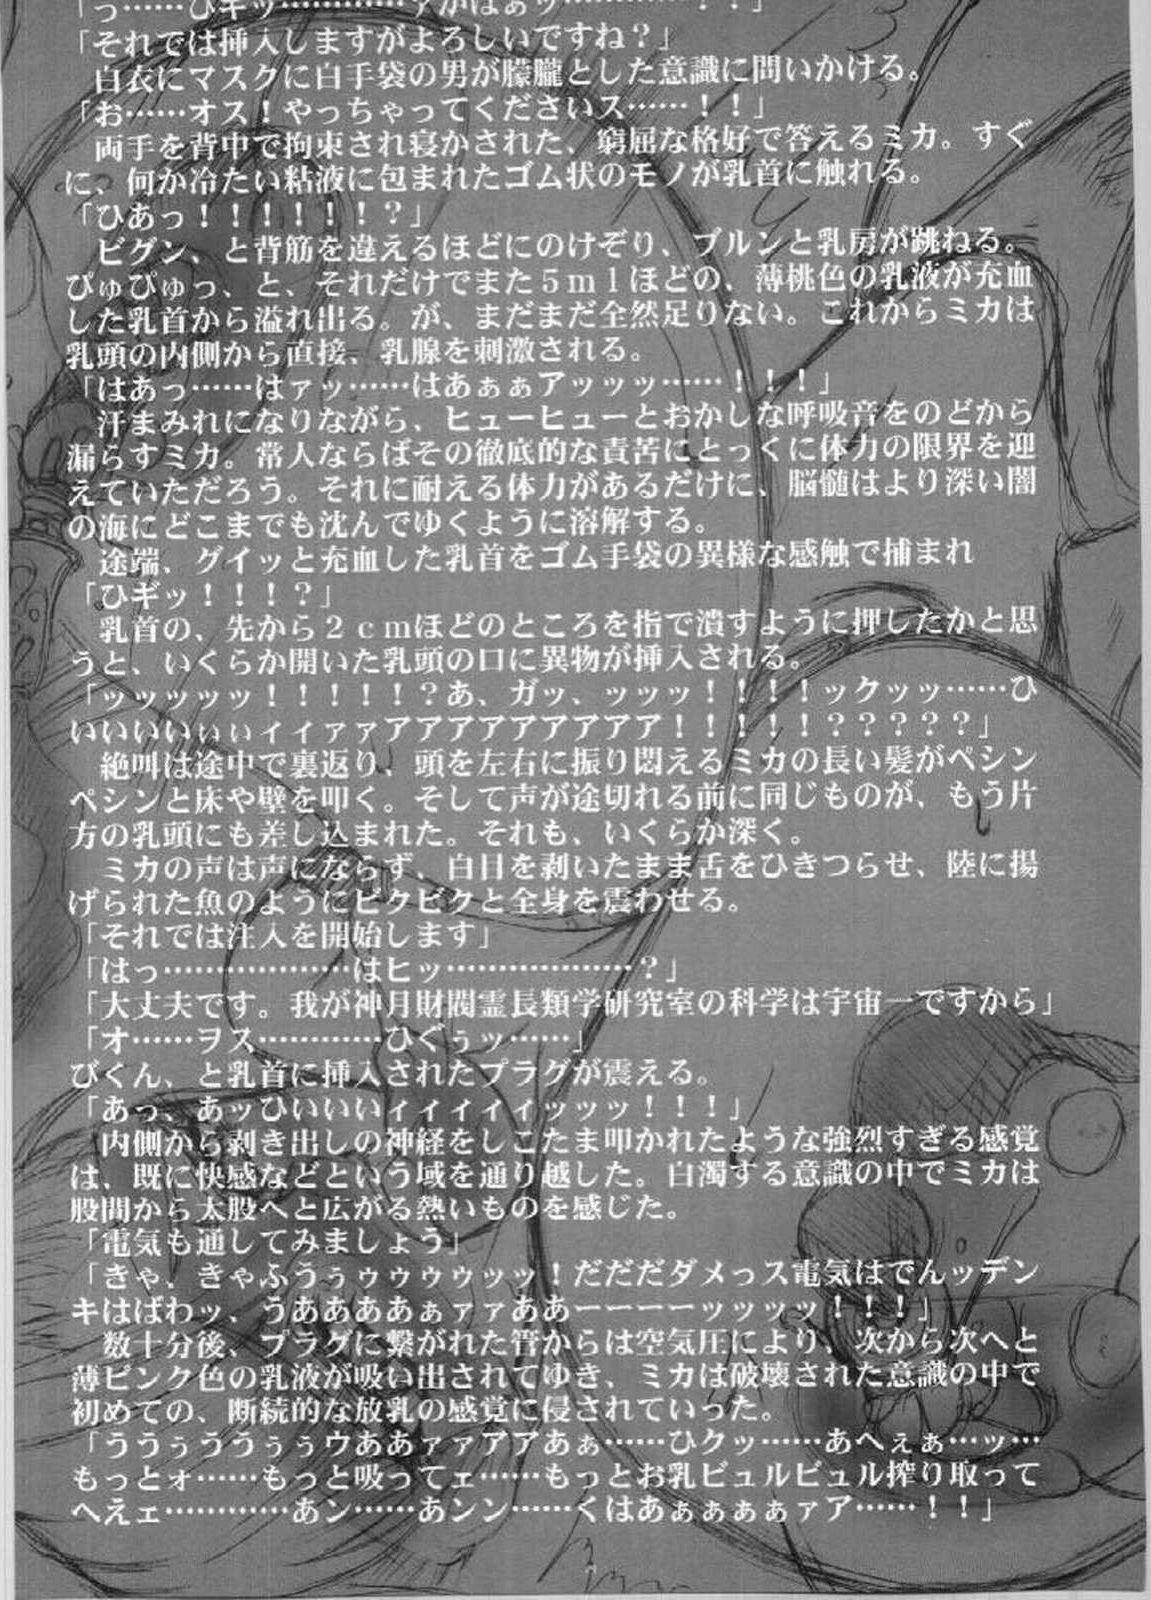 「それでは挿入しますがよろしいですね?」
白衣にマスクに白手袋の男が朦朧とした意識に問いかける。
「お……オス!やっちゃってくださいス……!!」
両手を背中で拘束され寝かされた、窮屈な格好で答えるミカ。すぐ
に、何か冷たい粘液に包まれたゴム状のモノが乳首に触れる。
「ひあっ!!!!!!?」
ビグン、と背筋を違えるほどにのけぞり、ブルンと乳房が跳ねる。
ぴゅぴゅっ、と、それだけでまた5mlほどの、薄桃色の乳液が充血
した乳首から溢れ出る。が、まだまだ全然足りない。これからミカは
乳頭の内側から直接、乳腺を刺激される。
「はあっ……はァッ……はあぁぁアッッッ……!!!」
汗まみれになりながら、ヒューヒューとおかしな呼吸音をのどから
漏らすミカ。常人ならばその徹底的な責苦にとっくに体力の限界を迎
えていただろう。それに耐える体力があるだけに、脳髄はより深い闇
の海にどこまでも沈んでゆくように溶解する。
途端、グイッと充血した乳首をゴム手袋の異様な感触で捕まれ
「ひギッ!!!?」
乳首の、先から2cmほどのところを指で潰すように押したかと思
うと、いくらか開いた乳頭の口に異物が挿入される。
「ッッッッッ!!!!!?あ、ガッ、ッッッ!!!!ックッッ……ひ
いいいいいぃぃィィァァアアアアアアアアアア!!!!!?????」
絶叫は途中で裏返り、頭を左右に振り悶えるミカの長い髪がペシン
ペシンと床や壁を叩く。そして声が途切れる前に同じものが、もう片
方の乳頭にも差し込まれた。それも、いくらか深く。
ミカの声は声にならず、白目を剥いたまま舌をひきつらせ、陸に揚
げられた魚のようにビクビクと全身を震わせる。
「それでは注入を開始します」
「はっ…………………はヒッ…………………?」
「大丈夫です。我が神月財閥霊長類学研究室の科学は宇宙一ですから」
「オ……ヲス…………ひぐぅッ……」
びくん、と乳首に挿入されたプラグが震える。
「あっ、あッひいいいィィィィィッッッ!!!」
内側から剥き出しの神経をしこたま叩かれたような強烈すぎる感覚
は、既に快感などという域を通り越した。白濁する意識の中でミカは
股間から太股へと広がる熱いものを感じた。
「電気も通してみましょう」
「きゃ、きゃふうぅゥゥゥゥッッ!だだだダメっス電気はでんッデン
キはばわッ、うああああぁァァああーーーーッッッッ!!!」
数十分後、プラグに繋がれた管からは空気圧により、次から次へと
薄ピンク色の乳液が吸い出されてゆき、ミカは破壊された意識の中で
初めての、断続的な放乳の感覚に侵されていった。
「ううぅううぅぅウああァァアアあぁ……ひクッ……あへぇぁ…ッ…
もっとォ……もっと吸ってェ……もっとお乳ビュルビュル搾り取って
へえェ…………あン……あンン……くはあぁぁぁぁァア……!!」